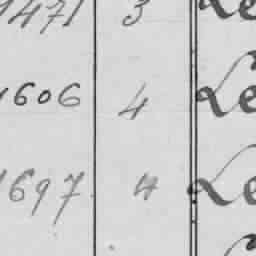 1471 3 Le
1606 4 Le
1697 4 Le